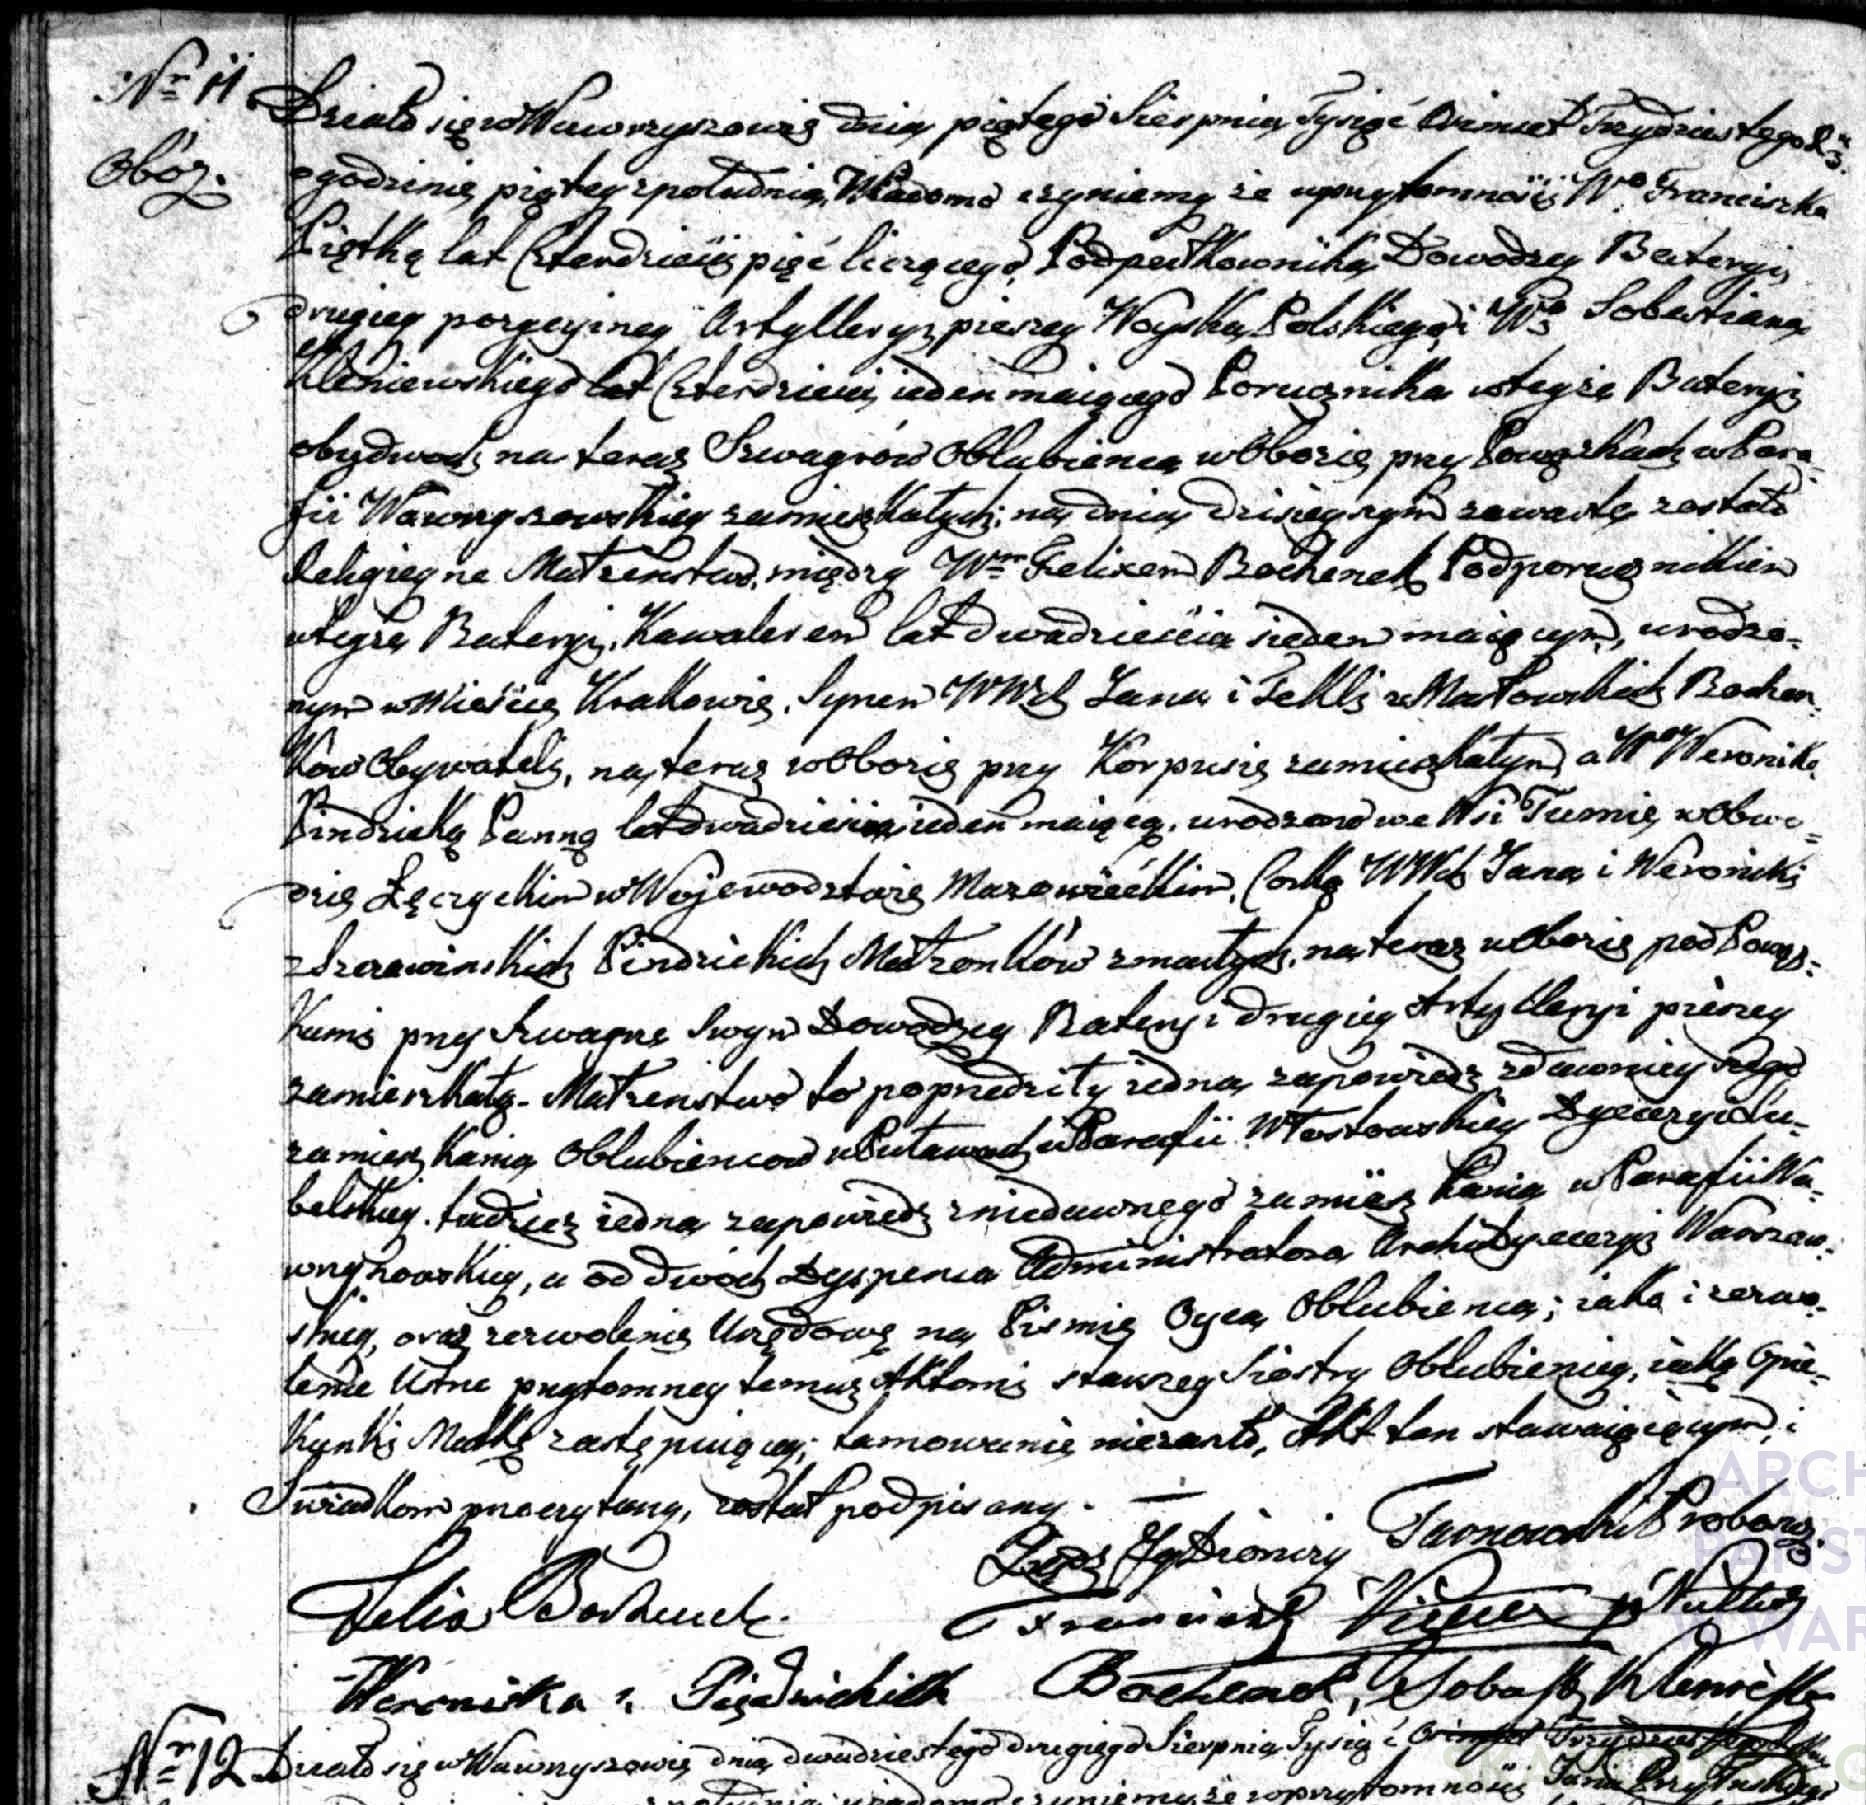 Nr 11.
Obóz.
Działo się w Wawrzyszewie dnia piątego Sierpnia Tysiąć Osimset Trzydziestego R.
o godzinie piątey z południa, Wiadomo czyniemy że w przytomności Wo. Franciszka
Piętką lat Czterdzieści pięć liczącego, Podpułkownika Dowódzcy Bateryi
drugiey pozycyiney Artylleryi pieszey Woyska Polskiego, i Wo. Sobestiana
Kleniewskiego lat Czterdzieści ieden maiącego Porucznika w teyże Bateryi
obydwóch na teraz Szwagrów Oblubieńca w Obozie przy Powązkach w Para-
fii Wawrzyszewskiey zamieszkałych; na dniu dzisieyszym zawarte zostało
Religiyne Małżeństwo, między Wm Felixem Bochenek Podporucznikiem
w teyże Bateryi, Kawalerem lat dwadzieścia siedem maiącym, urodzo-
nym w Mieście Krakowie, Synem WWch Jana i Tekli z Małowskich Bochen-
ków Obywateli, na teraz w Obozie przy Korpusie zamieszkałym, a Weroniką
Pindzicką Panną lat dwadzieścia ieden maiącą, urodzoną we Wsi Tumie w Obwo-
dzie Łęczyckim w Wojewodztwie Mazowieckim, Corką WWch Jana i Weroniki
z Szerawinskich Pindzickich Małżonków zmarłych, na teraz w Obozie pod Pową-
Kami przy Szwagrze Swym Dowódzcy Bateryi drugiey Artylleryi pieszey
zamieszkałą. Małżeństwo to poprzedziły iedna zapowiedz z dawniey szego
zamieszkania Oblubienców w Puławach w Parafii Włostowskiey Dyecezyi Lu-
belskiey, tudzież iedna zapowiedz z niedawnego zamiesz kania w Parafii Wa-
wrzyszewskiey, a od dwóch Dyspensa Administratora Archidyecezyi Warszaw-
skiey, oraz zezwolenie Urzędowe na Pismie Oyca Oblubienca; iako i zezwo-
lenie Ustne przytomney temuż Aktowi starszey Siostry Oblubienicy, iako Opie-
Kunki Matkę zastępuiącey; tamowanie niezaszło, Akt ten stawaiącym, i
Swiadkom przeczytany, został podpisany.
Xiądz Tarnowski Probosz.
Felix Bochenek.
Franciszek Piętka p Pułko
Weronika z Pindzickich Bochenek, Sobast Kleniewski
Nr 12 Działo się w Wawrzyszewie dnia dwudziestego drugiego Sierpnia Tysiąć Osimset Trzydziestego Roku
z południa, wiadomo czyniemy że w przytomności Jana